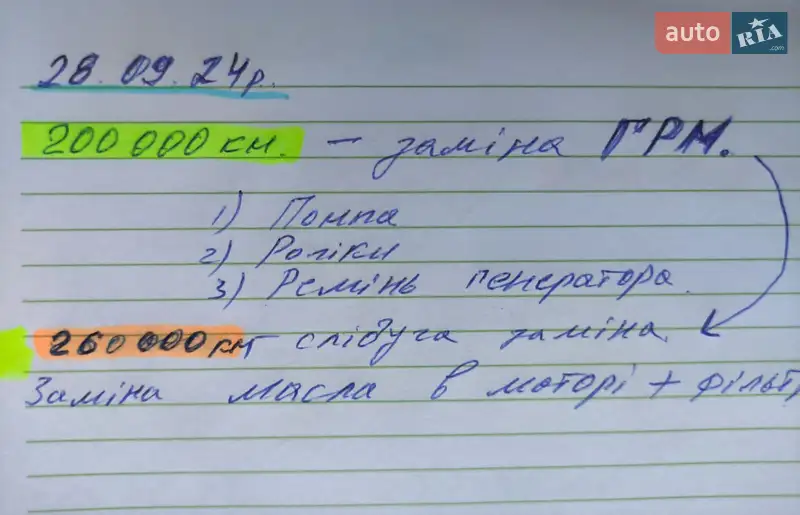 auto RIA .com
28.09.24р.
200 000 км. – заміна ГРМ.
1) Помпа
2) Роліки
3) Ремінь генератора.
260 000 км слідуча заміна.
Заміна масла в моторі + фільт